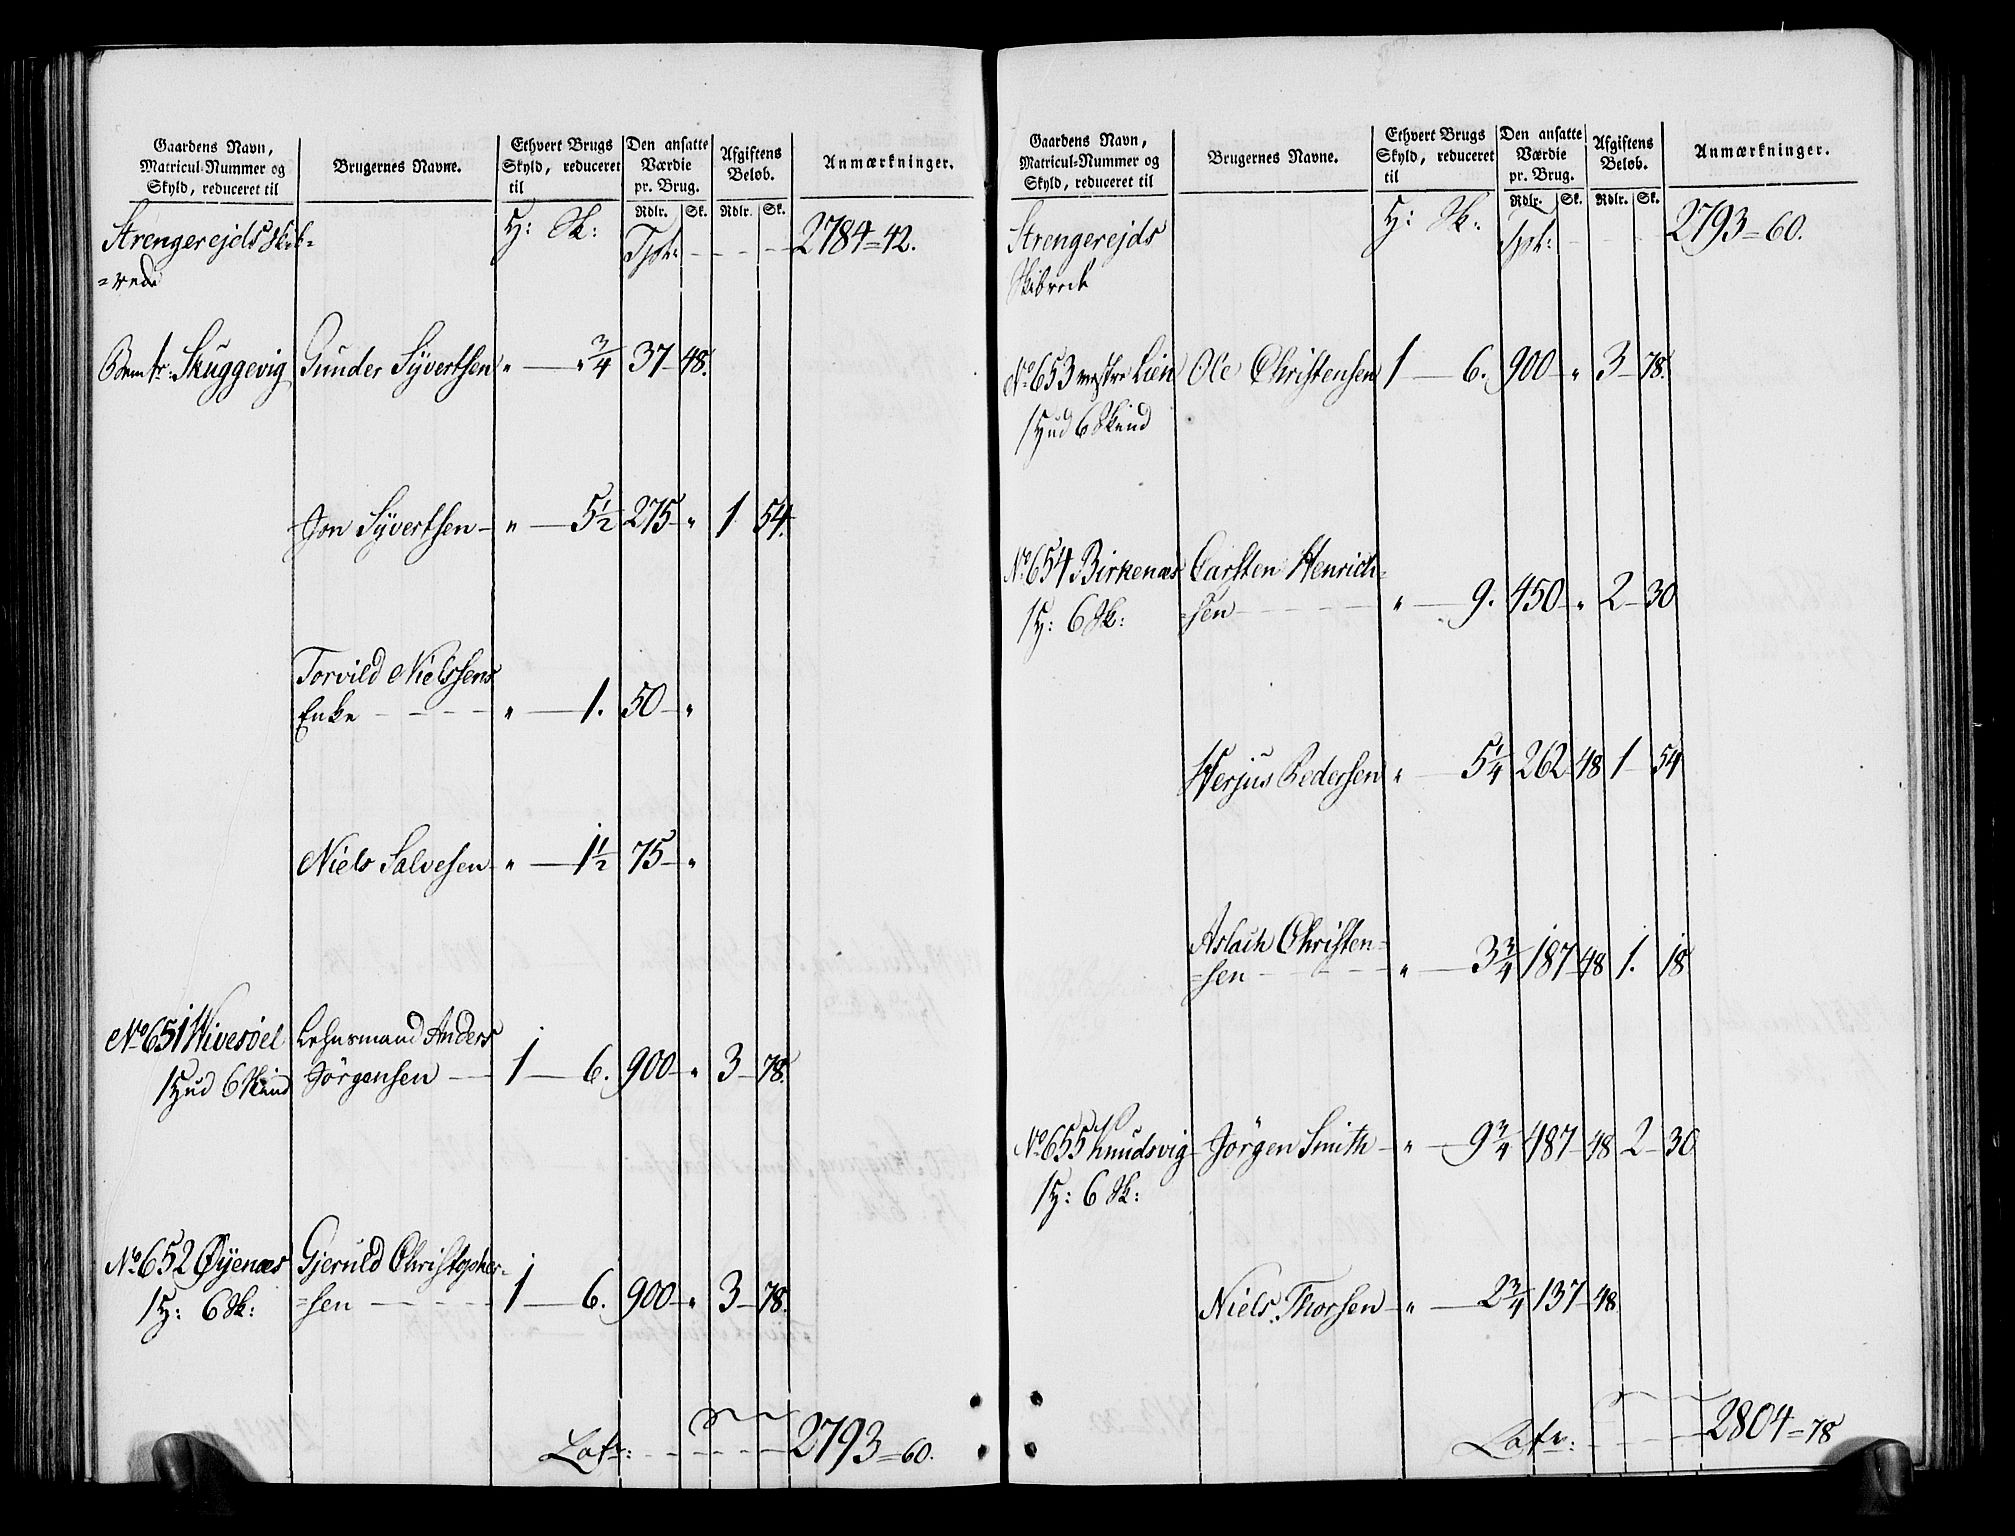 Gaardens Navn, Matricul-Nummer og Skyld, reduceret til | Brugernes Navne. | Ethvert Brugs Skyld, reduceret til | Den ansatte Værdie pr. Brug. | Afgiftens Beløb. | Anmærkninger.
Rdlr. | Sk. | Rdlr. | Sk.
Strengerejds Skib= | H: Sk: | Tpt: | 2784=42.
=rede
Skuggevig | Gunder Syvertsen | " — " 3/4 | 37 — 48.
Jon Syvertsen — | " — 5 1/2 | 275 — " | 1 | 54.
Torvild Nielssens
Enke | " — 1. | 50 — "
Niels Salvesen | " — 1 1/2 | 75 — "
No 651 Wivesöel | Lehnsmand Anders
1 Hud 6 Skind | Jörgensen — | 1 — 6. | 900 — " | 3 — 78.
No 652 Øyenæs | Gjeruld Christopher=
1 H: 6 Sk: | =sen | 1 — 6. | 900 — " | 3 — 78.
Latr: | 2793=60.
Gaardens Navn, Matricul-Nummer og Skyld, reduceret til | Brugernes Navne. | Ethvert Brugs Skyld, reduceret til | Den ansatte Værdie pr. Brug. | Afgiftens Beløb. | Anmærkninger.
Rdlr. | Sk. | Rdlr. | Sk.
Strengerejds | H: Sk: | Tpt: | 2793=60.
Skibrede
No 653 vestre Lien | Ole Christensen | 1 — 6. | 900 — " | 3 — 78.
1 Hud 6 Skind
No 654 Birkenæs | Carsten Henrich=
1 H: 6 Sk: | =sen | " — 9. | 450 — " | 2 — 30
Herjus Pedersen | " — 5 1/4 | 262 — 48 | 1 — 54
Aslach Christen=
=sen | " — 3 3/4 | 187 — 48 | 1. | 18
No 655 Knudsvig | Jörgen Smith — | " — 9 3/4 | 487 — 48 | 2 — 30
1 H: 6 Sk:
Niels Thorsen | " — 2 3/4 | 137 — 48
Latr: | 2804=78